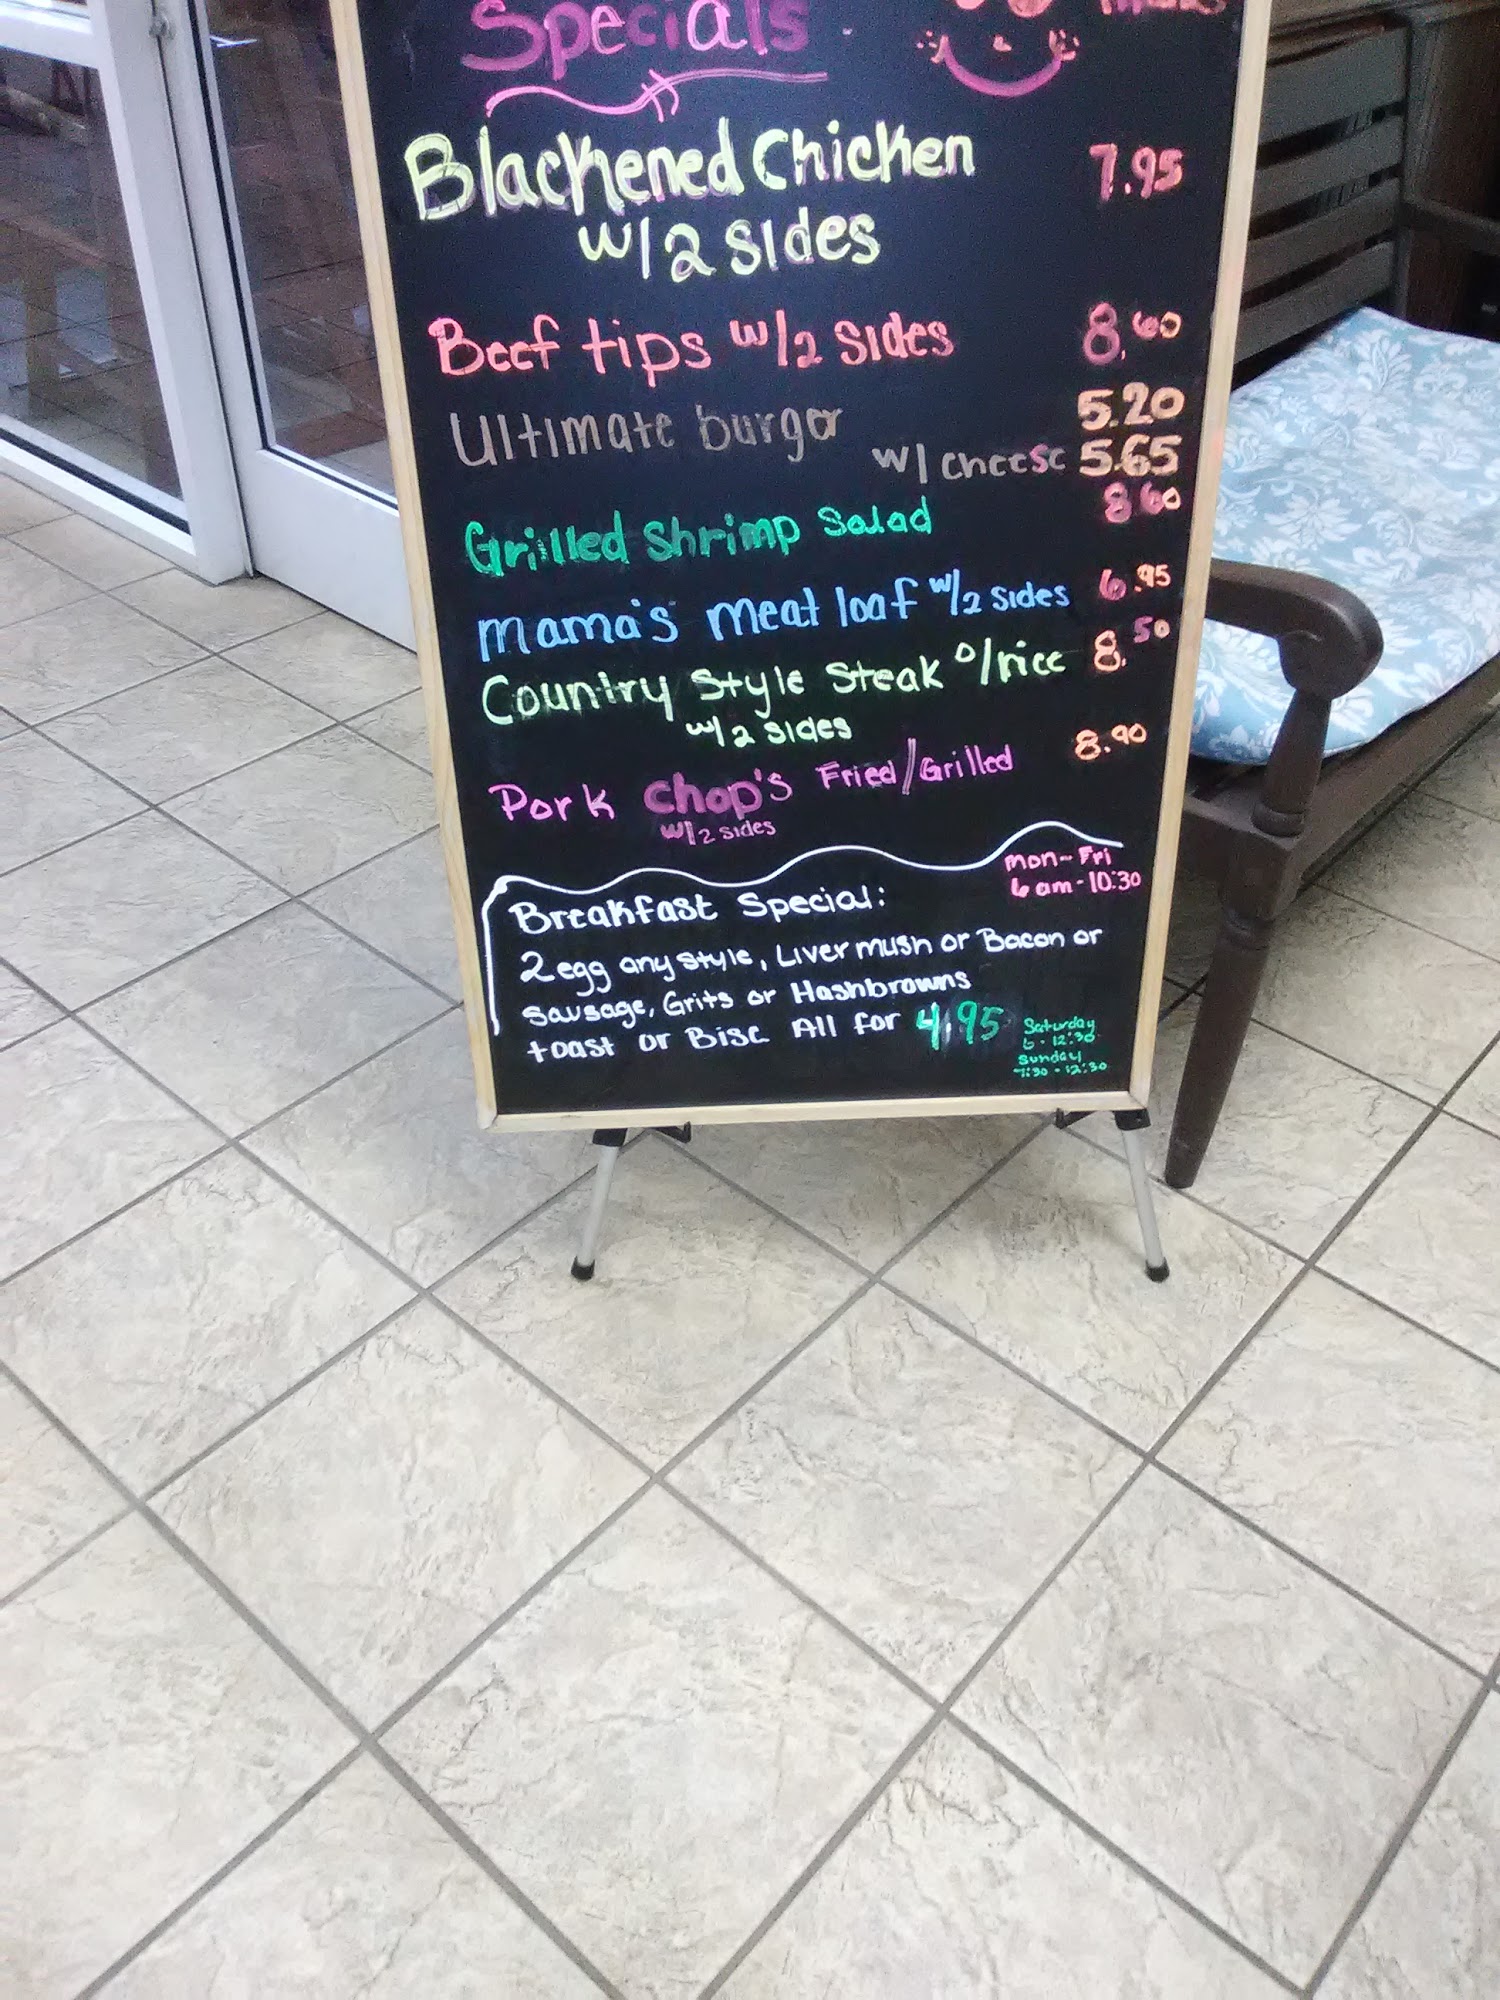 Specials
Blackened Chicken 7.95
w/2 sides
Beef tips w/2 sides 8.60
Ultimate burger 5.20
w/ cheese 5.65
Grilled shrimp Salad 8.60
Mama's meat loaf w/2 sides 6.95
Country Style Steak o/rice 8.50
w/2 sides
Pork Chop's Fried/Grilled 8.90
w/2 sides
Mon-Fri
6 am-10:30
Breakfast Special:
2 egg any style, Liver mush or Bacon or
Sausage, Grits or Hashbrowns
toast or Bisc All for 4.95
Saturday
6 - 12:30
Sunday
7:30 - 12:30